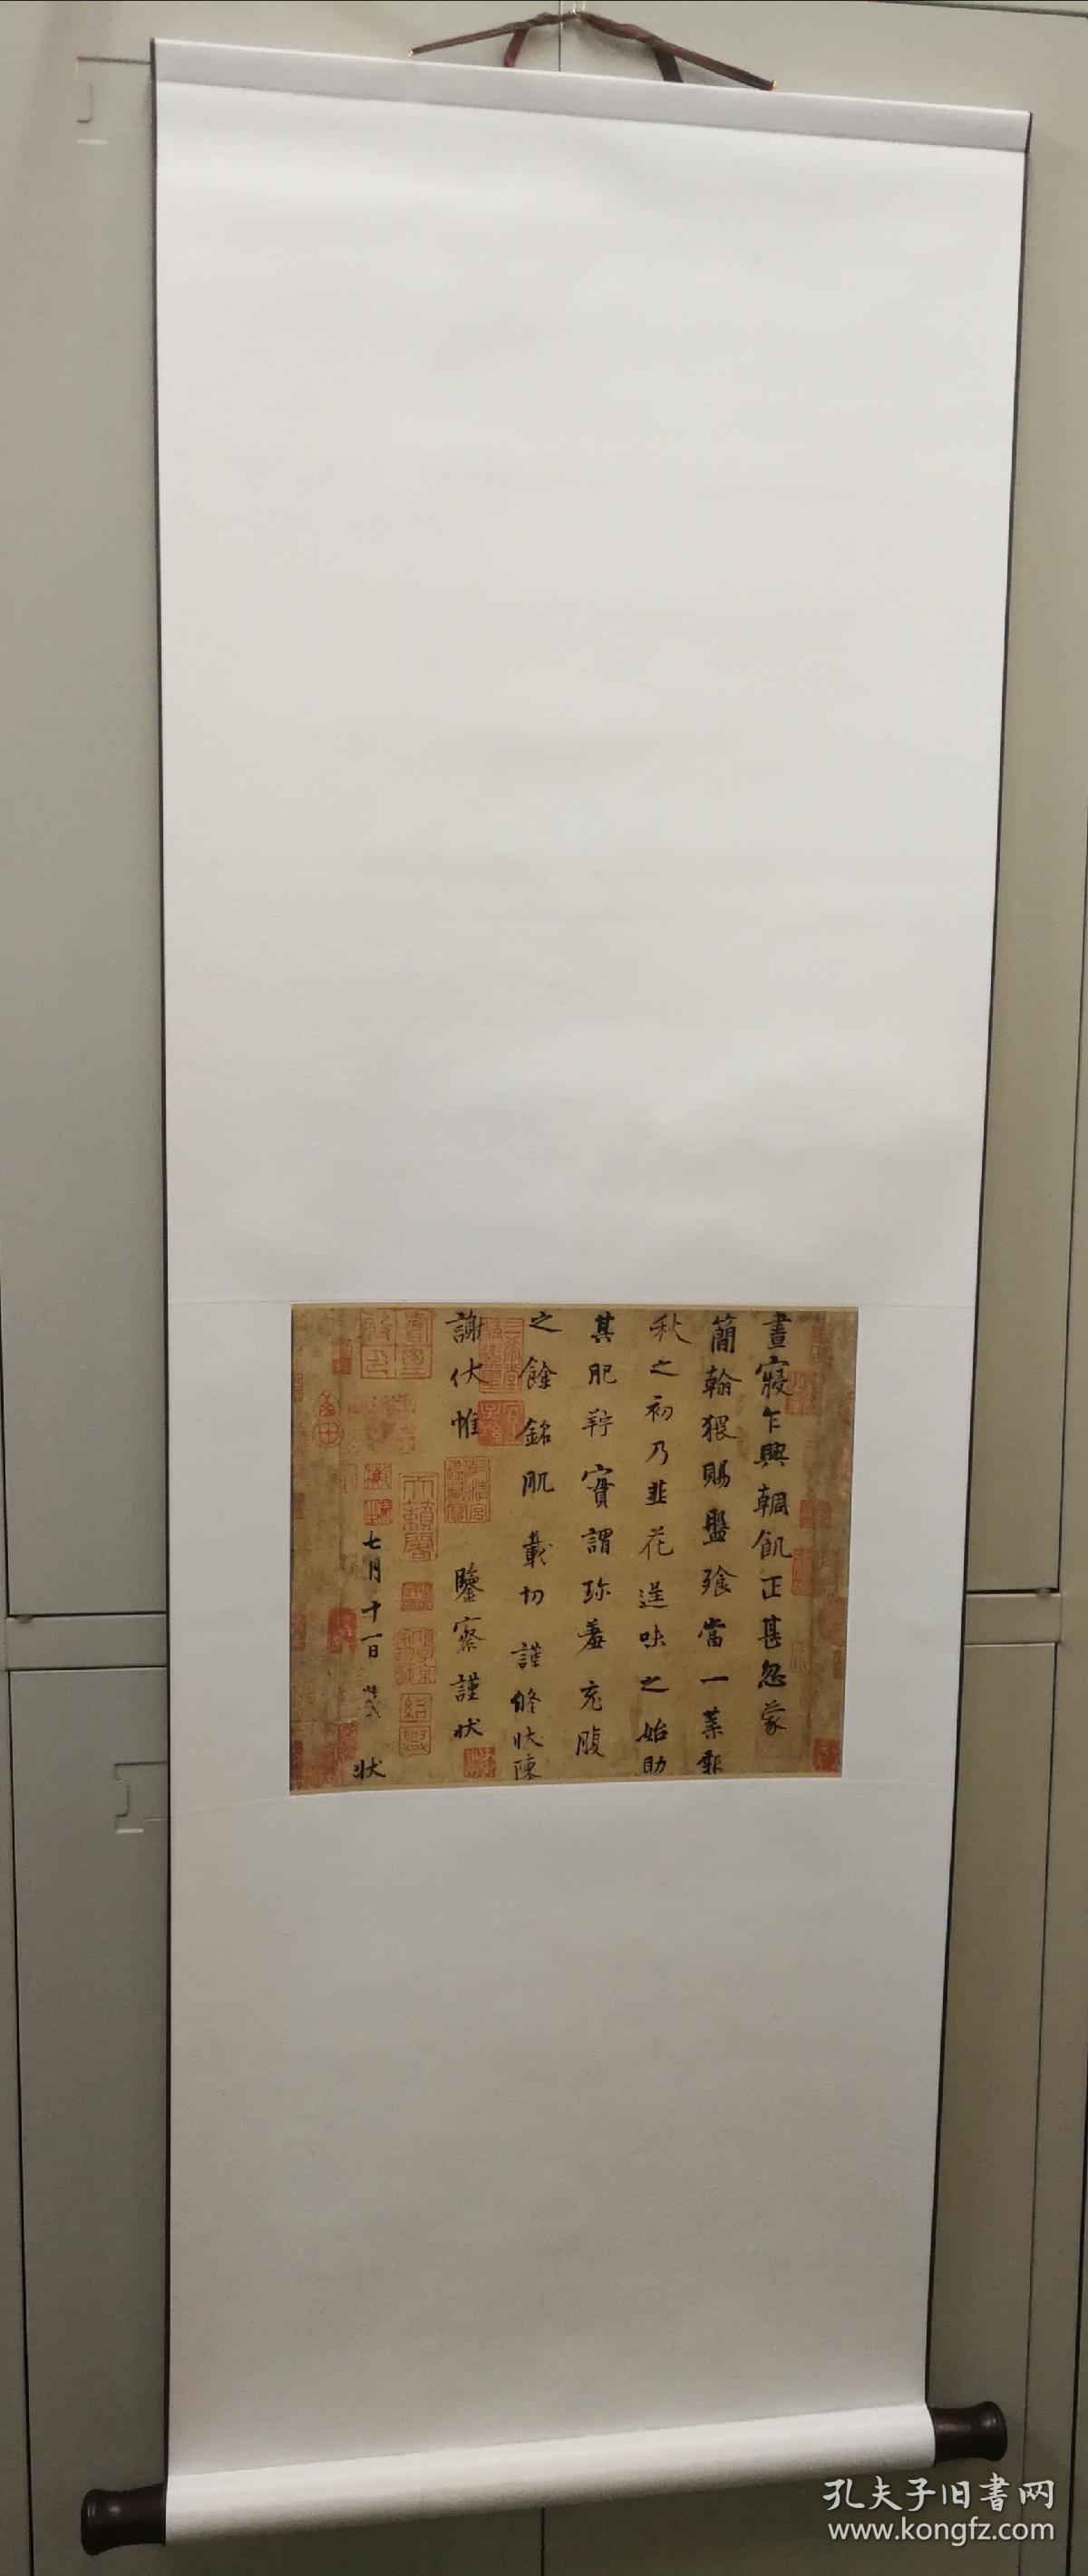 晝寢乍興輖飢正甚忽蒙
簡翰猥賜盤飱當一葉報
秋之初乃韭花逞味之始助
其肥羜實謂珍羞充腹
之餘銘肌載切謹修狀陳
謝伏惟
鑒察謹狀
七月十一日
狀
孔夫子旧書网
www.kongfz.com